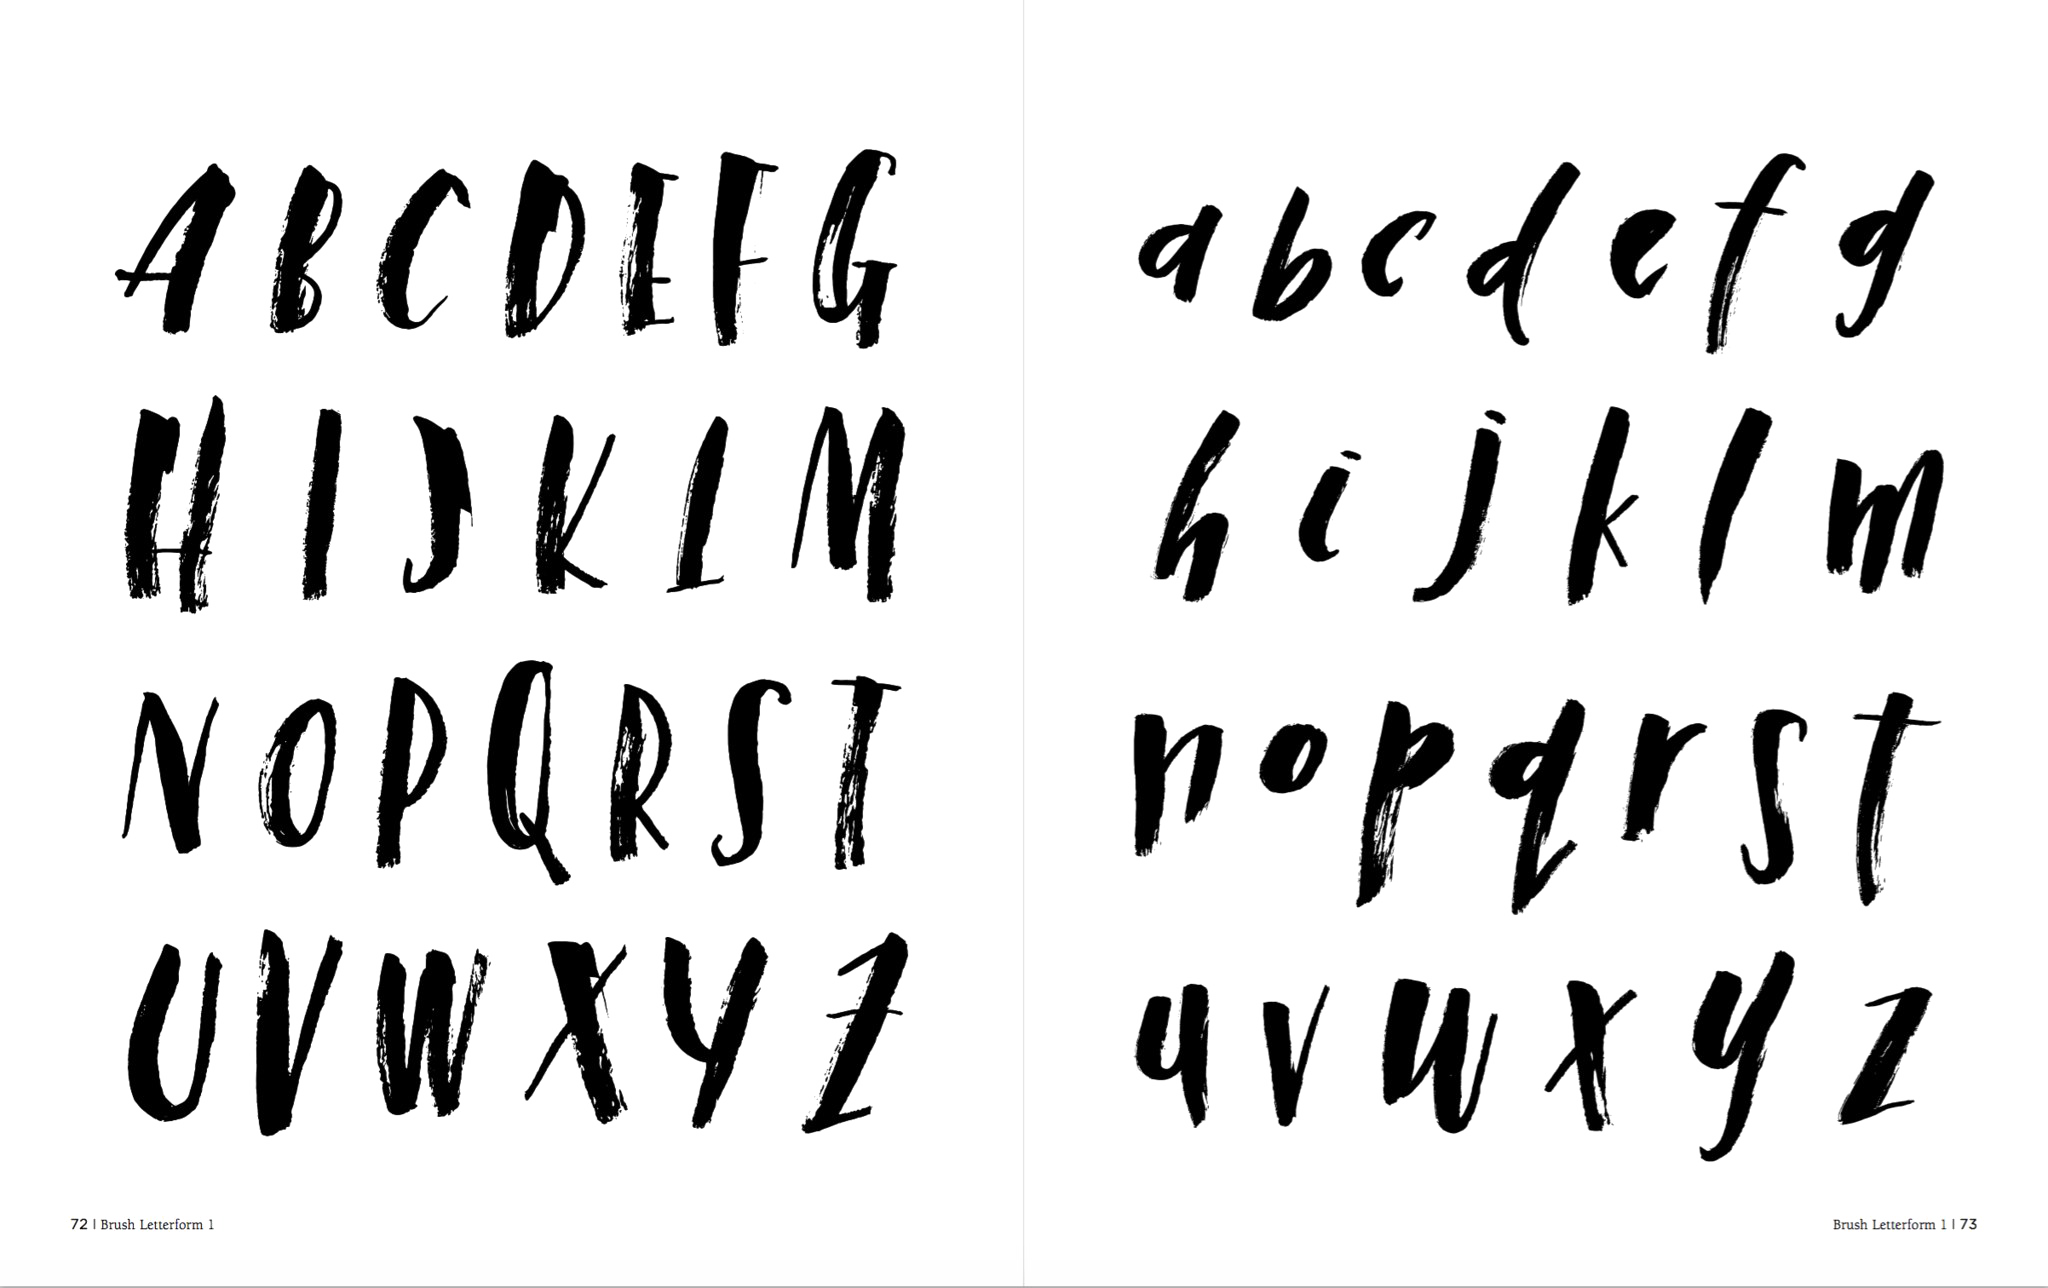 A B C D E F G
H I J K L M
N O P Q R S T
U V W X Y Z
72 | Brush Letterform 1
a b c d e f g
h i j k l m
n o p q r s t
u v w x y z
Brush Letterform 1 | 73